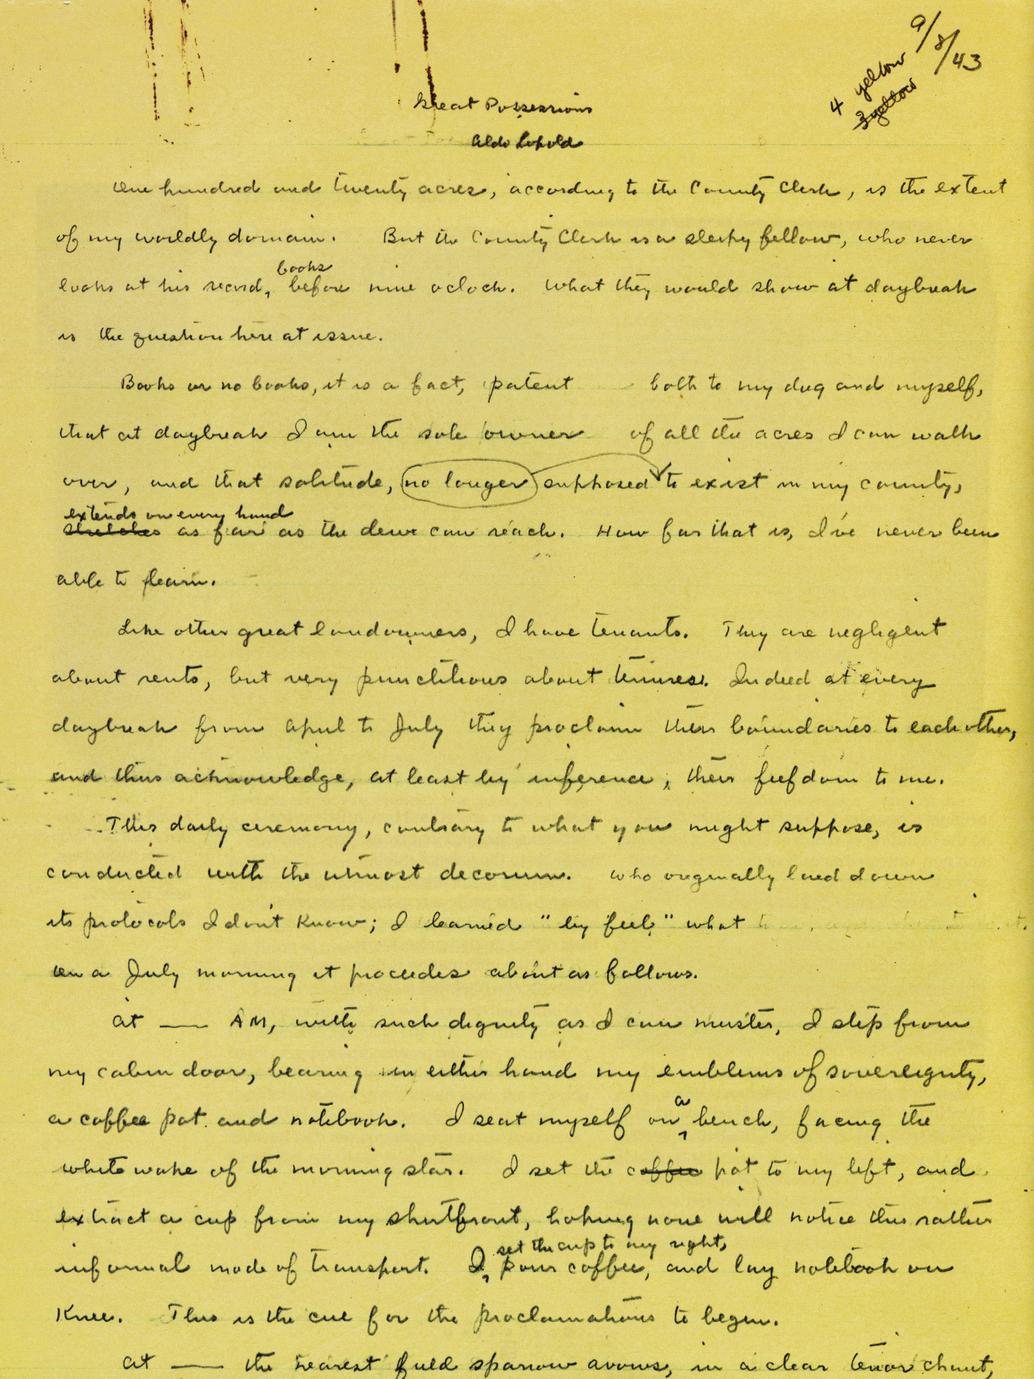 9/8/43
4 yellow
3 yellow
Great Possessions
Aldo Leopold
One hundred and twenty acres, according to the County Clerk, is the extent
of my worldly domain. But the County Clerk is a sleepy fellow, who never
books
looks at his record, before nine oclock. What they would show at daybreak
is the question here at issue.
Books or no books, it is a fact, patent both to my dog and myself,
that at daybreak I am the sole owner of all the acres I can walk
over, and that solitude, no longer supposed to exist in my county,
extends on every hand
stretches as far as the dew can reach. How far that is, I've never been
able to learn.
Like other great landowners, I have tenants. They are negligent
about rents, but very punctilious about tenures. Indeed at every
daybreak from April to July they proclaim their boundaries to each other,
and thus acknowledge, at least by inference, their fiefdom to me.
This daily ceremony, contrary to what you might suppose, is
conducted with the utmost decorum. Who originally laid down
its protocols I don't know; I learned "by feel" what
On a July morning it proceedes about as follows.
At — AM, with such dignity as I can muster, I step from
my cabin door, bearing in either hand my emblems of sovereignty,
a coffee pot and notebook. I seat myself on a bench, facing the
white wake of the morning star. I set the coffee pot to my left, and
extract a cup from my shirtfront, hoping none will notice this rather
set the cup to my right,
informal mode of transport. I, pour coffee, and lay notebook on
Knee. This is the cue for the proclamations to begin.
At — the nearest field sparrow avows, in a clear tenor chant,